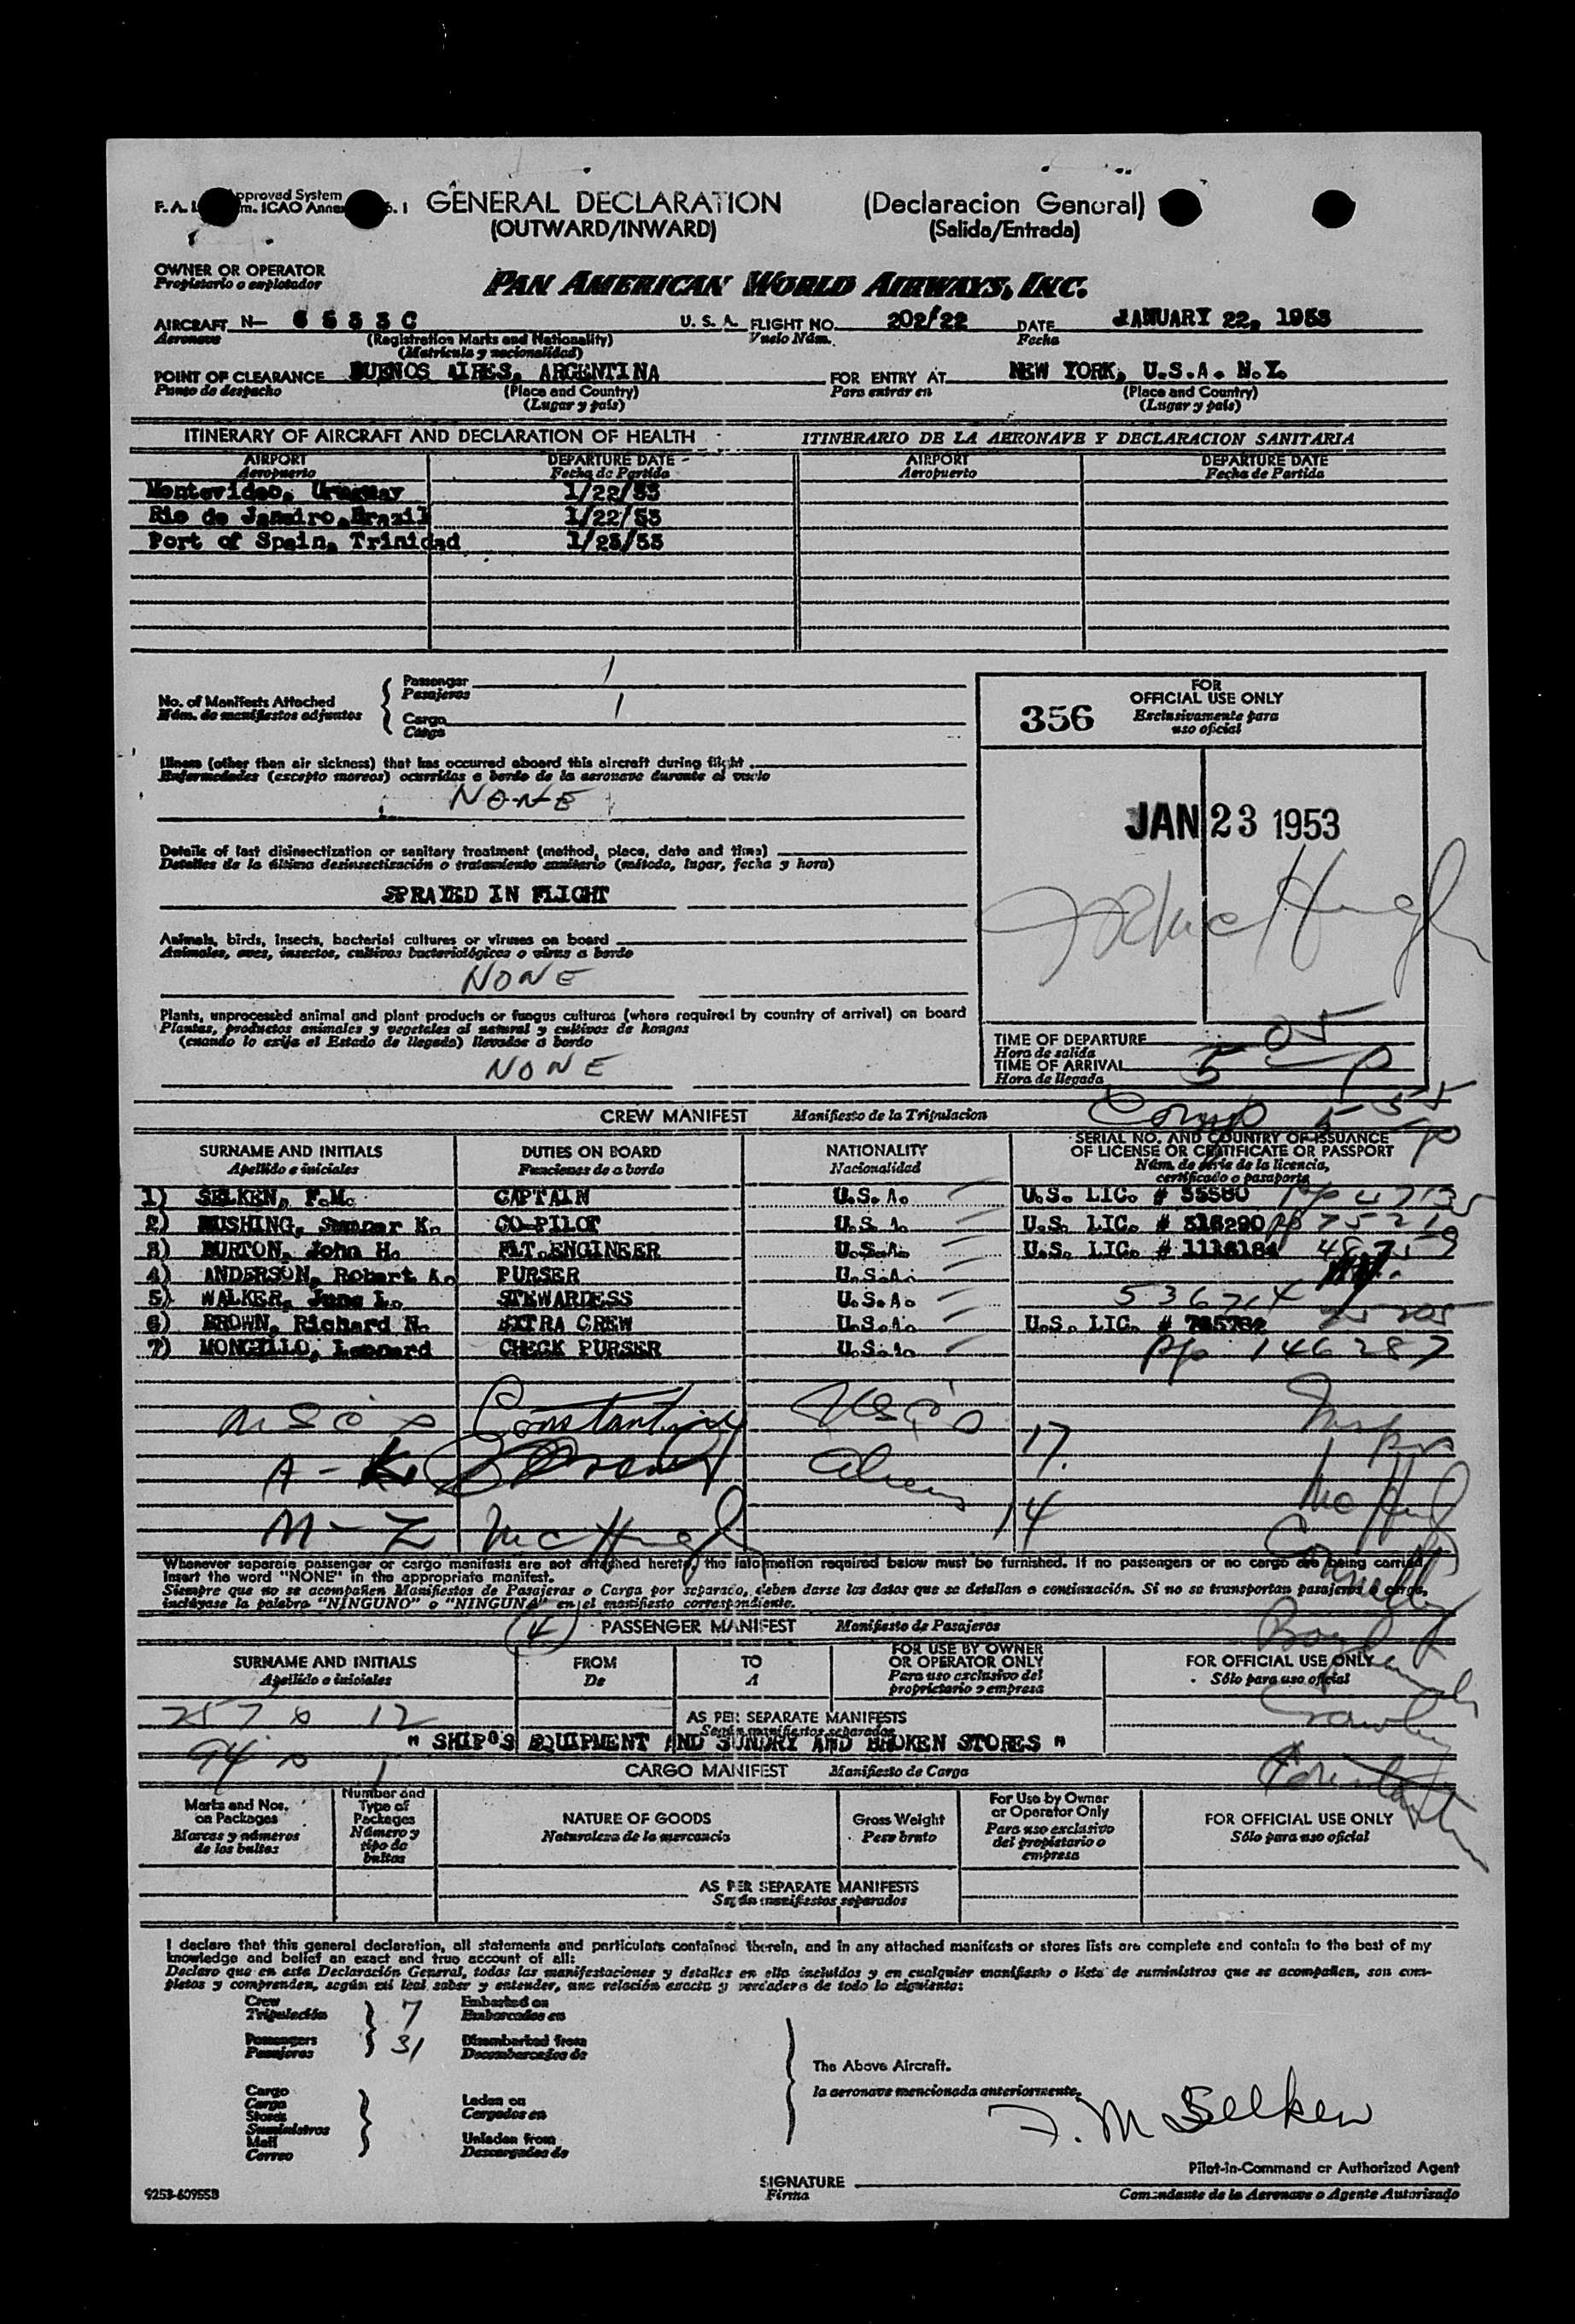 F.A. pproved System
m. ICAO Anne
GENERAL DECLARATION (Declaracion General)
(OUTWARD/INWARD) (Salida/Entrada)
OWNER OR OPERATOR
Propietario o explotador
PAN AMERICAN WORLD AIRWAYS, INC.
AIRCRAFT N- U. S. A. FLIGHT NO. 202/22 DATE JANUARY 22, 1953
Aeronave (Registration Marks and Nationality) Vuelo Núm. Fecha
(Matrícula y nacionalidad)
POINT OF CLEARANCE BUENOS AIRES, ARGENTINA FOR ENTRY AT NEW YORK, U.S.A. N.Y.
Punto de despacho (Place and Country) Para entrar en (Place and Country)
(Lugar y país) (Lugar y país)
ITINERARY OF AIRCRAFT AND DECLARATION OF HEALTH ITINERARIO DE LA AERONAVE Y DECLARACION SANITARIA
AIRPORT DEPARTURE DATE AIRPORT DEPARTURE DATE
Aeropuerto Fecha de Partida Aeropuerto Fecha de Partida
Montevideo, Uruguay 1/22/53
Rio de Janeiro, Brazil 1/22/53
Port of Spain, Trinidad 1/23/53
No. of Manifests Attached
Núm. de manifiestos adjuntos
Passenger 1
Pasajeros
Cargo 1
Carga
FOR
OFFICIAL USE ONLY
356
Exclusivamente para
uso oficial
Illness (other than air sickness) that has occurred aboard this aircraft during flight
Enfermedades (excepto mareos) ocurridas a bordo de la aeronave durante el vuelo
NONE
JAN 23 1953
Details of last disinsectization or sanitary treatment (method, place, date and time)
Detalles de la última desinsectización o tratamiento sanitario (método, lugar, fecha y hora)
SPRAYED IN FLIGHT
Animals, birds, insects, bacterial cultures or viruses on board
Animales, aves, insectos, cultivos bacteriológicos o virus a bordo
NONE
Plants, unprocessed animal and plant products or fungus cultures (where required by country of arrival) on board
Plantas, productos animales y vegetales al natural y cultivos de hongos
(cuando lo exija el Estado de llegada) llevados a bordo
NONE
TIME OF DEPARTURE
Hora de salida
TIME OF ARRIVAL 5 05 p
Hora de llegada
Comp 5 55 p
CREW MANIFEST Manifiesto de la Tripulacion
SURNAME AND INITIALS DUTIES ON BOARD NATIONALITY SERIAL NO. AND COUNTRY OF ISSUANCE
Apellido e iniciales Funciones de a bordo Nacionalidad OF LICENSE OR CERTIFICATE OR PASSPORT
Núm. de serie de la licencia,
certificado o pasaporte
1) SELKEN, F.M. CAPTAIN U.S.A. U.S. LIC. # 55580
2) Sumner K. CO-PILOT U.S.A. U.S. LIC. # 516290
3) BURTON, John H. FLT.ENGINEER U.S.A. U.S. LIC. #
4) ANDERSON, Robert A. PURSER U.S.A.
5) WALKER, June L. STEWARDESS U.S.A.
6) BROWN, Richard N. EXTRA CREW U.S.A. U.S. LIC. #
7) Leonard CHECK PURSER U.S.A. pp 146287
Constantine 17
A - K Aliens 14
M - Z McHugh
Whenever separate passenger or cargo manifests are not attached hereto, the information required below must be furnished. If no passengers or no cargo are being carried,
insert the word "NONE" in the appropriate manifest.
Siempre que no se acompañen Manifiestos de Pasajeros o Carga por separado, deben darse los datos que se detallan a continuación. Si no se transportan pasajeros o carga,
inclúyase la palabra "NINGUNO" o "NINGUNA" en el manifiesto correspondiente.
(4) PASSENGER MANIFEST Manifiesto de Pasajeros
SURNAME AND INITIALS FROM TO FOR USE BY OWNER OR OPERATOR ONLY FOR OFFICIAL USE ONLY
Apellido e iniciales De A Para uso exclusivo del proprietario o empresa Sólo para uso oficial
AS PER SEPARATE MANIFESTS
Según manifiestos separados
" SHIP'S EQUIPMENT AND SUNDRY AND BROKEN STORES "
CARGO MANIFEST Manifiesto de Carga
Marks and Nos. on Packages Number and Type of Packages NATURE OF GOODS Gross Weight For Use by Owner or Operator Only FOR OFFICIAL USE ONLY
Marcas y números de los bultos Número y tipo de bultos Naturaleza de la mercancia Peso bruto Para uso exclusivo del propietario o empresa Sólo para uso oficial
AS PER SEPARATE MANIFESTS
Según manifiestos separados
I declare that this general declaration, all statements and particulars contained therein, and in any attached manifests or stores lists are complete and contain to the best of my
knowledge and belief an exact and true account of all:
Declaro que en esta Declaración General, todas las manifestaciones y detalles en ella incluidos y en cualquier manifiesto o lista de suministros que se acompañen, son com-
pletos y comprenden, según mi leal saber y entender, una relación exacta y verdadera de todo lo siguiente:
Crew 7 Embarked on
Tripulación Embarcados en
Passengers 31 Disembarked from
Pasajeros Desembarcados de
The Above Aircraft.
la aeronave mencionada anteriormente.
Cargo
Carga Laden on
Stores Cargados en
Suministros
Mail Unladen from
Correo Descargados de
F. M Selken
Pilot-in-Command or Authorized Agent
SIGNATURE
Firma Comandante de la Aeronave o Agente Autorizado
9253-609SSB